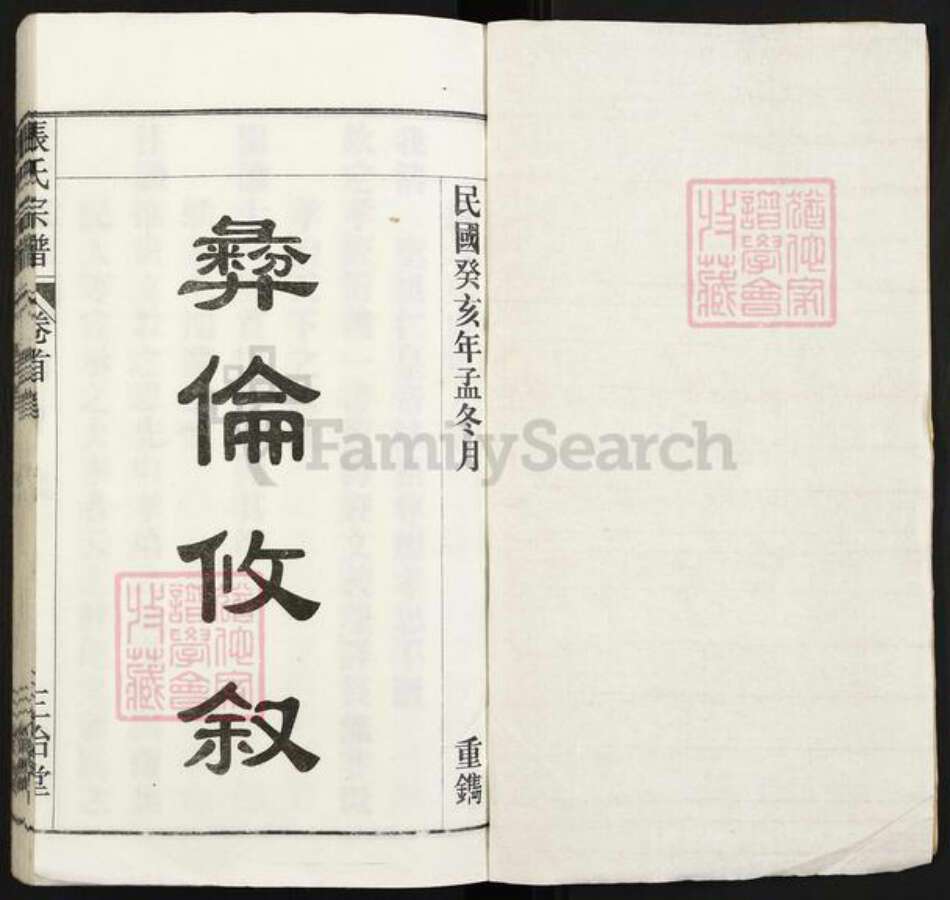 猶他家
譜學會
收藏
民國癸亥年孟冬月 重鐫
彝倫攸敘
猶他家
譜學會
收藏
張氏宗譜 卷首 三治堂
FamilySearch